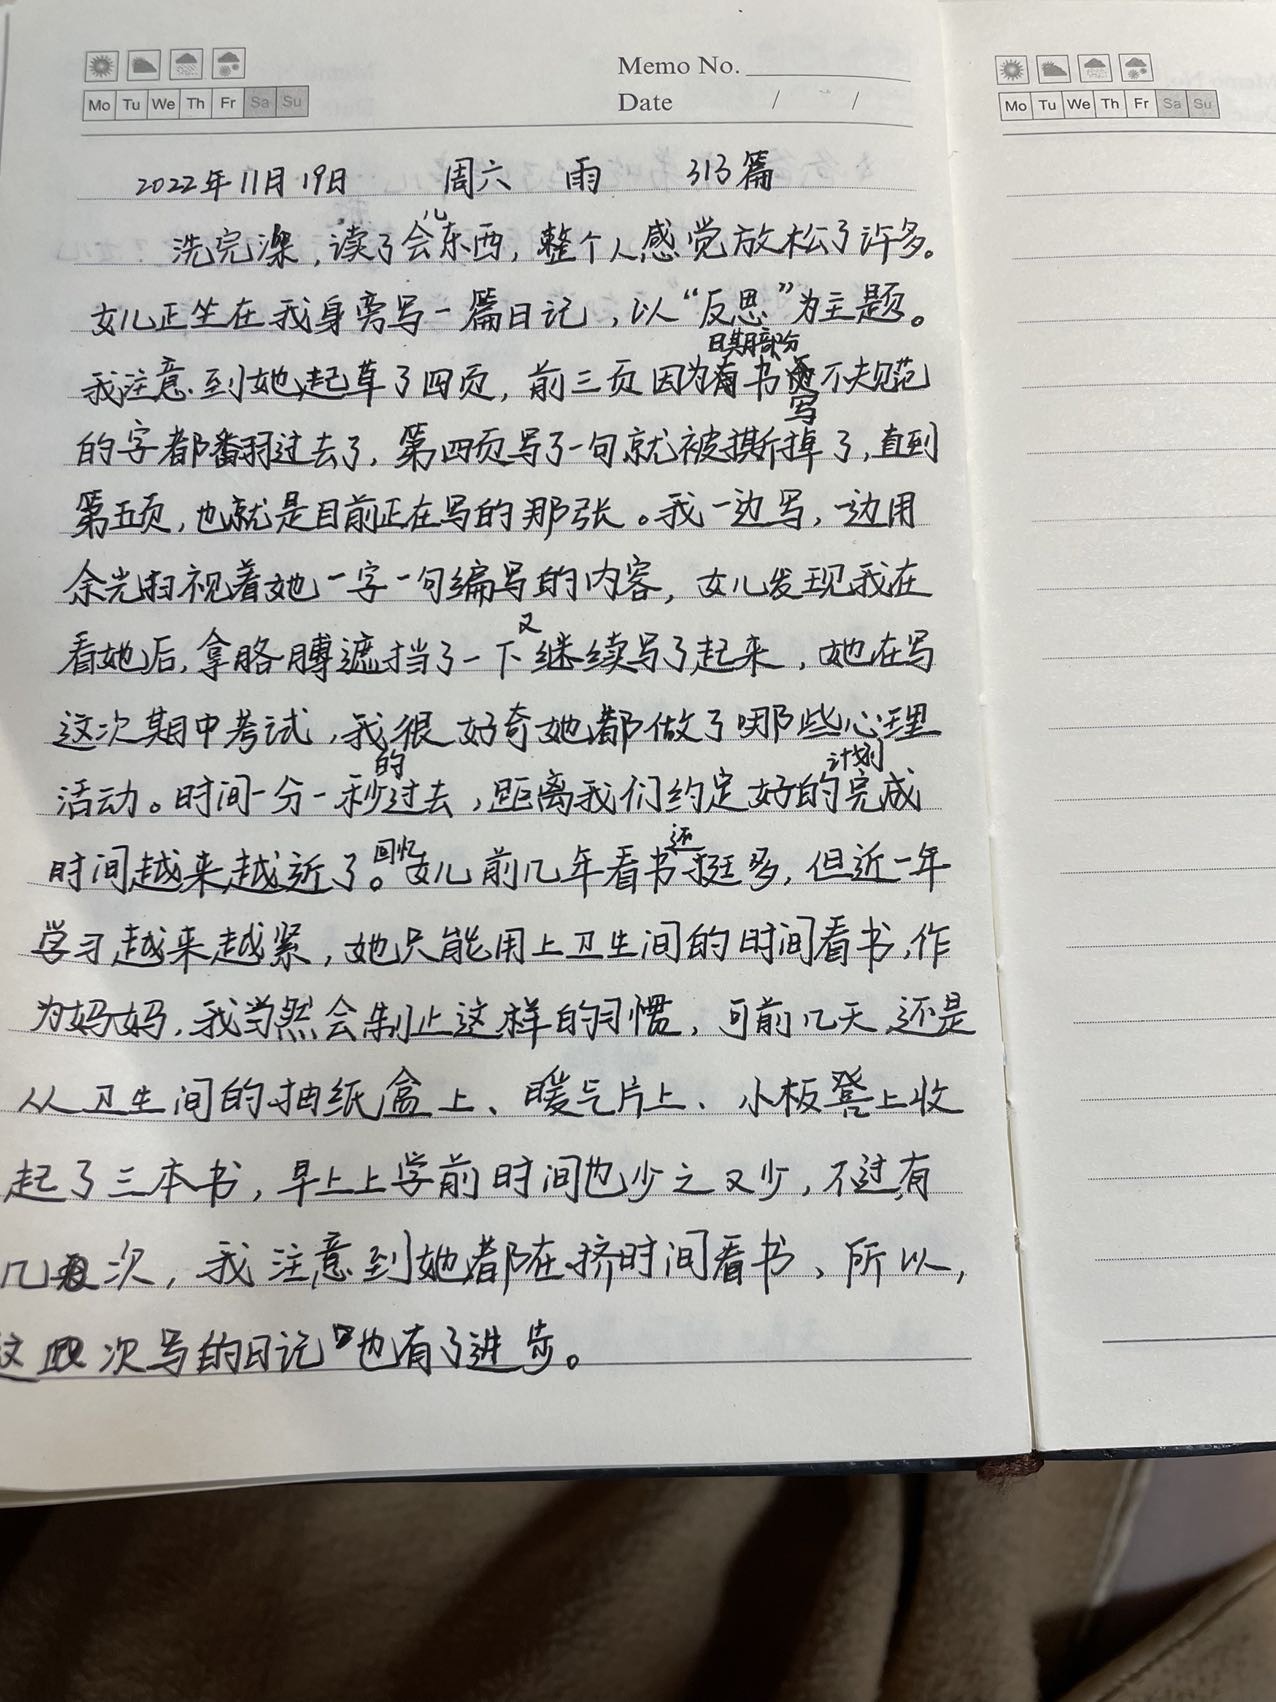 Memo No.
Date / /
Mo Tu We Th Fr Sa Su
2022年11月19日 周六 雨 313篇
洗完澡,读了会儿东西,整个人感觉放松了许多。
女儿正坐在我身旁写一篇日记,以“反思”为主题。
我注意到她起草了四页,前三页因为有日期部分书写不规范
的字都翻过去了,第四页写了一句就被撕掉了,直到
第五页,也就是目前正在写的那张。我一边写,一边用
余光扫视着她一字一句编写的内容,女儿发现我在
看她后,拿胳膊遮挡了一下又继续写了起来,她在写
这次期中考试,我很好奇她都做了哪些心理
活动。时间一分一秒的过去,距离我们约定好的计划完成
时间越来越近了。回忆女儿前几年看书还挺多,但近一年
学习越来越紧,她只能用上卫生间的时间看书,作
为妈妈,我当然会制止这样的习惯,可前几天还是
从卫生间的抽纸盒上、暖气片上、小板凳上收
起了三本书,早上上学前时间也少之又少,不过有
几次,我注意到她都在挤时间看书、所以,
这次写的日记也有了进步。
Mo Tu We Th Fr Sa Su